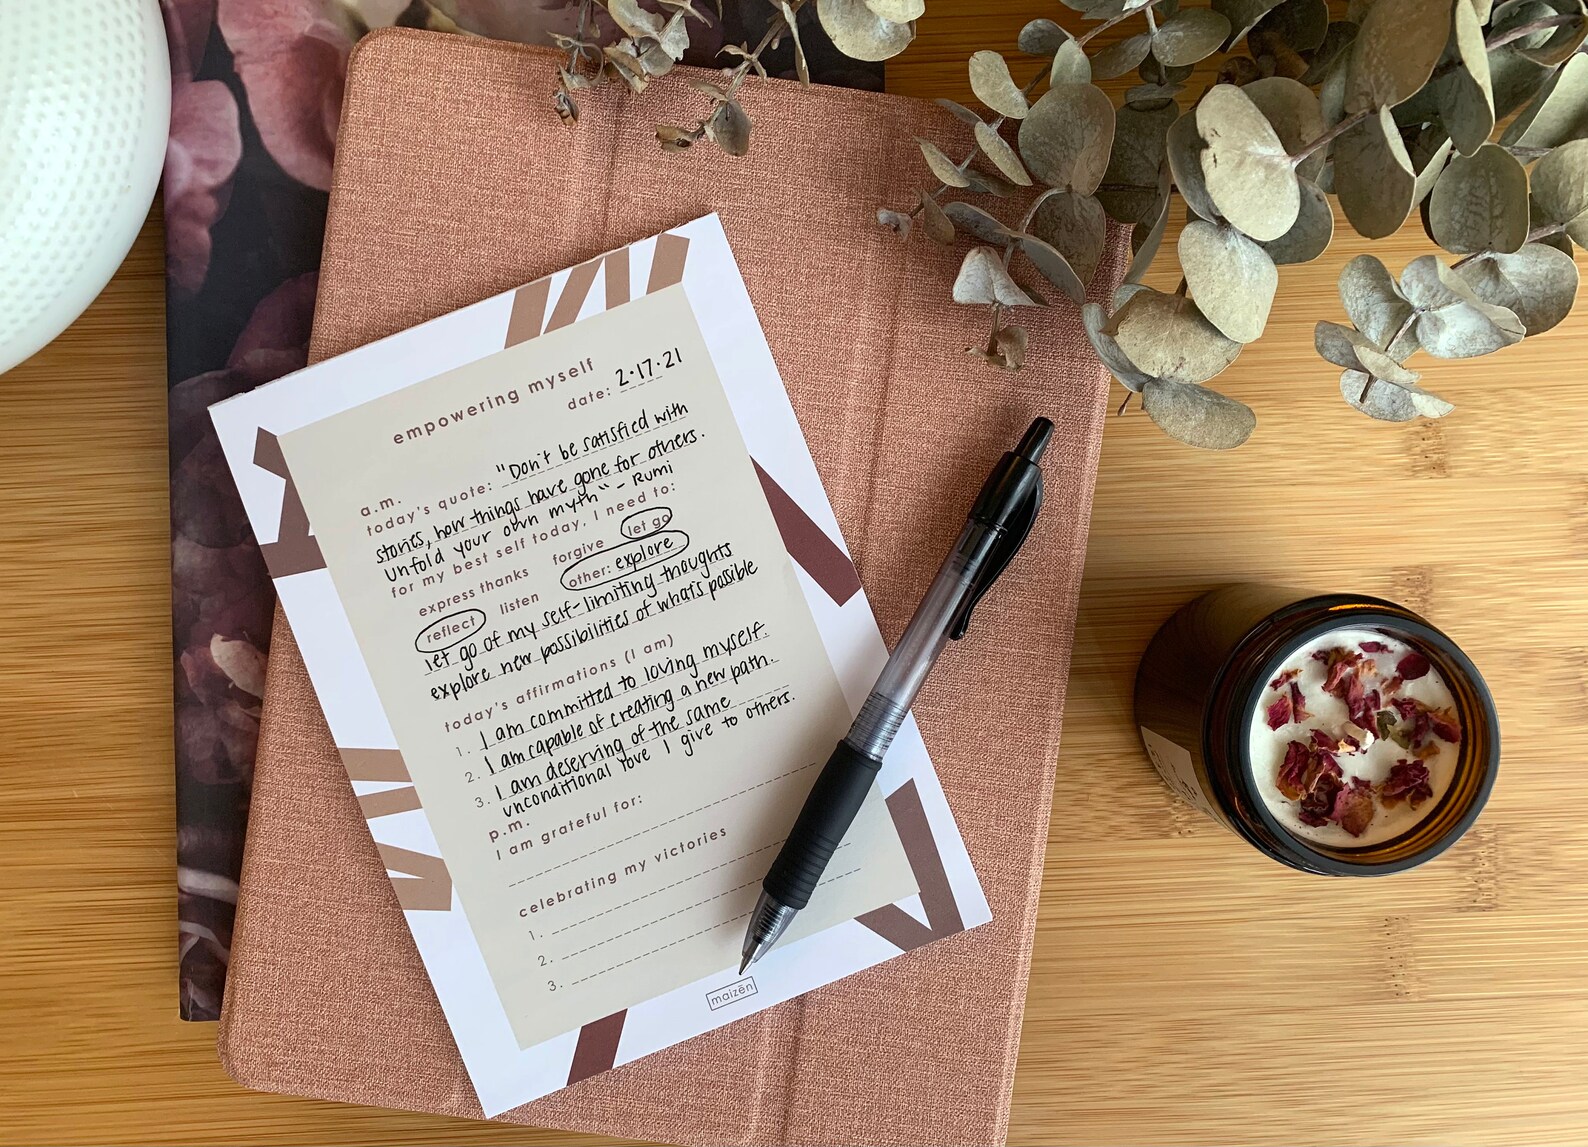 empowering myself
date: 2.17.21
a.m.
today's quote: "Don't be satisfied with
stories, how things have gone for others.
unfold your own myth" - Rumi
for my best self today, I need to:
express thanks forgive let go
reflect listen other: explore
let go of my self-limiting thoughts
explore new possibilities of what's possible
today's affirmations (I am)
1. I am committed to loving myself.
2. I am capable of creating a new path.
3. I am deserving of the same
unconditional love I give to others.
p.m.
I am grateful for:
celebrating my victories
1.
2.
3.
maizēn